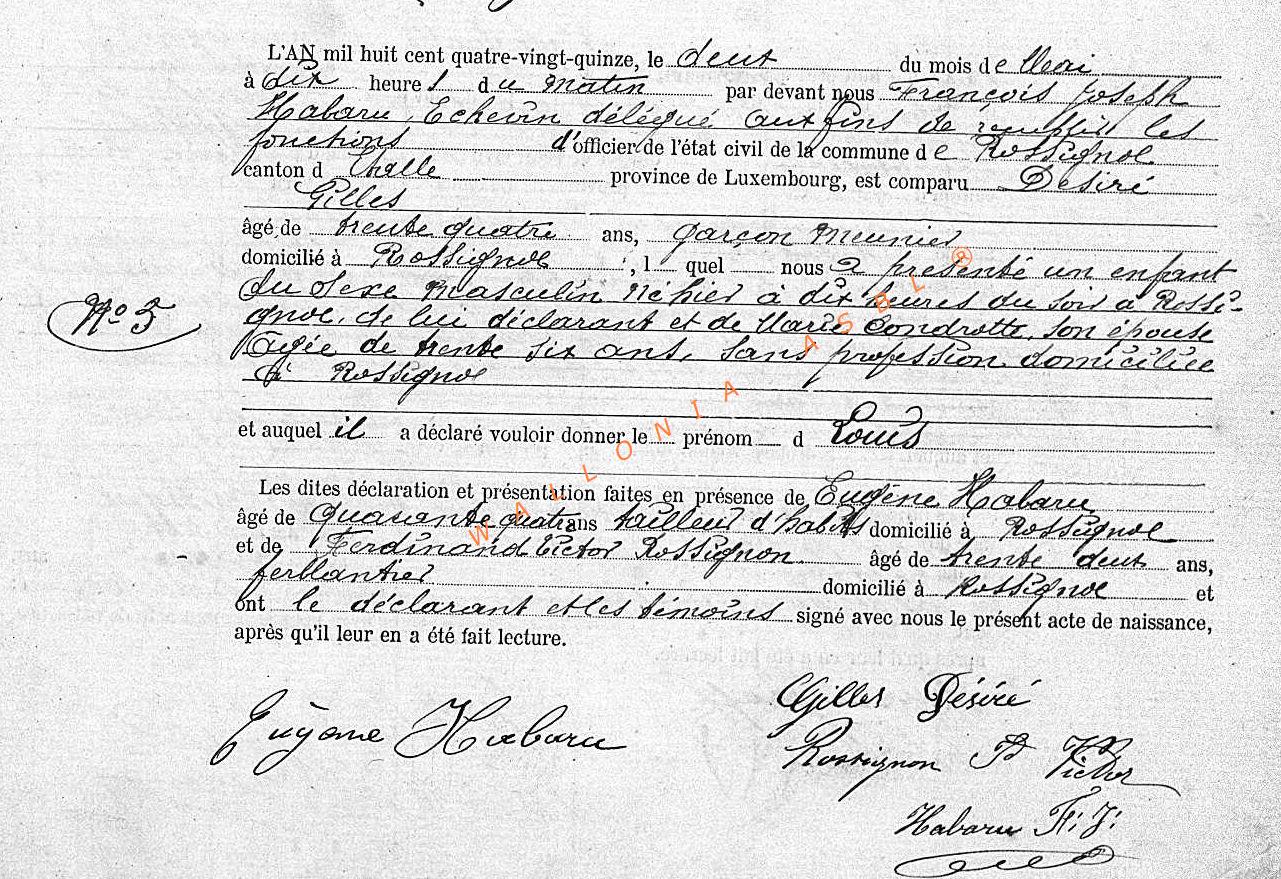 L'AN mil huit cent quatre-vingt-quinze, le deux du mois de Mai
à dix heures du matin par devant nous François Joseph
Habaru, Echevin délégué aux fins de remplir les
fonctions d'officier de l'état civil de la commune de Rossignol
canton d province de Luxembourg, est comparu Desiré
Gilles
âgé de trente quatre ans, garçon meunier
domicilié à Rossignol, l quel nous a presenté un enfant
du Sexe Masculin né hier à dix heures du soir à Rossi-
gnol, de lui déclarant et de Marie Condrotte, son épouse
Agée de trente six ans, sans profession domiciliée
à Rossignol
N° 3
et auquel il a déclaré vouloir donner le prénom d Louis
Les dites déclaration et présentation faites en présence de Eugène Habaru
âgé de quarante quatre ans tailleur d'habits domicilié à Rossignol
et de Ferdinand Victor Rossignon âgé de trente deux ans,
ferblantier domicilié à Rossignol et
ont le déclarant et les témoins signé avec nous le présent acte de naissance,
après qu'il leur en a été fait lecture.
Gilles Désiré
Eugène Habaru
Rossignon Fd Victor
Habaru F. J.
WALLONIA ASBL ®